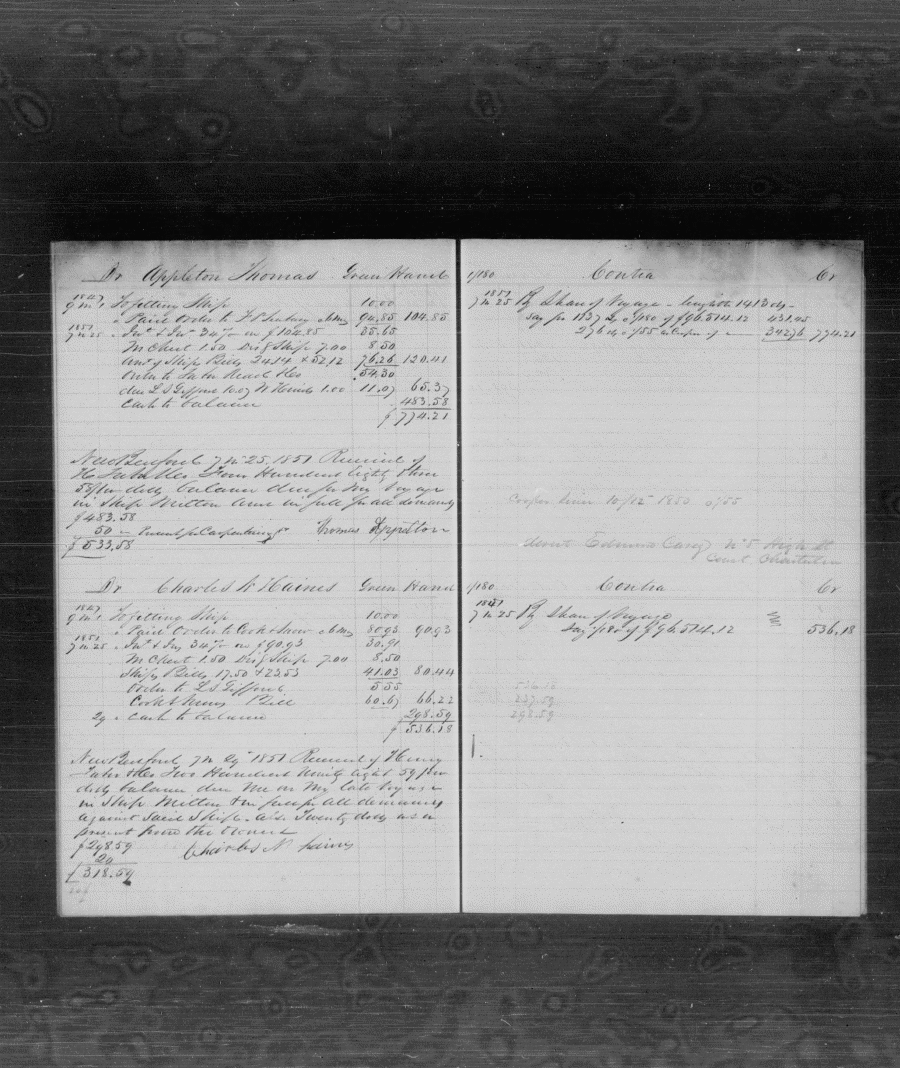 Dr Appleton Thomas Green Hand
1847
9 m 1 To fitting Ship 10.00
" Paid Order to 94.85 104.85
1851
7 m 25 " Int & Ins 34 % on $104.85 35.65
M Chest 1.50 Dis g Ship 7.00 8.50
amt of Ships Bills 24.14 & 52.12 76.26 120.41
Order to Taber 54.30
due L S Gifford 10.07 W 1.00 11.07 65.37
Cash to balance 483.58
$ 774.21
New Bedford 7 m 25. 1851 Received of
H. Taber & Co Four Hundred Eighty three
58/100 dolls balance due for my voyage
in Ship Milton and in full for all demands
$483.58
50 - Present for Carpentering
$533.58
Thomas Appleton
Dr Charles N Haines Green Hand
1847
9 m 1 To fitting Ship 10.00
" Paid Order to Cook & Snow 80.93 90.93
1851
7 m 25 " Int & Ins 34 % on $90.93 30.91
M Chest 1.50 Dis g Ship 7.00 8.50
Ships Bills 17.50 & 23.53 41.03 80.44
Order to L S Gifford 5.55
Cook & Bill 60.67 66.22
29 " Cash to balance 298.59
$ 536.18
New Bedford 7 m 29 1851 Received of Henry
Taber & Co Two Hundred Ninety Eight 59/100
dolls balance due me on my late voyage
in Ship Milton & in full for all demands
against said Ship. also Twenty dolls as a
present from the Owners
$298.59
20
$318.59
Charles N Haines
1/180 Contra Cr
1851
7 m 25 By Share of Voyage - length 1413 days
say for 1137 d @ 1/180 of $96.514.12 431.45
276 d @ 1/55 as Cooper of " 342.76 774.21
Cooper from 10/12 1850 @ 1/55
Edmund Carey No 5 High St
Court Charlestown
1/180 Contra Cr
1851
7 m 25 By Share of Voyage
Say 1/180 of $96.514.12 536.18
536.18
237.59
298.59